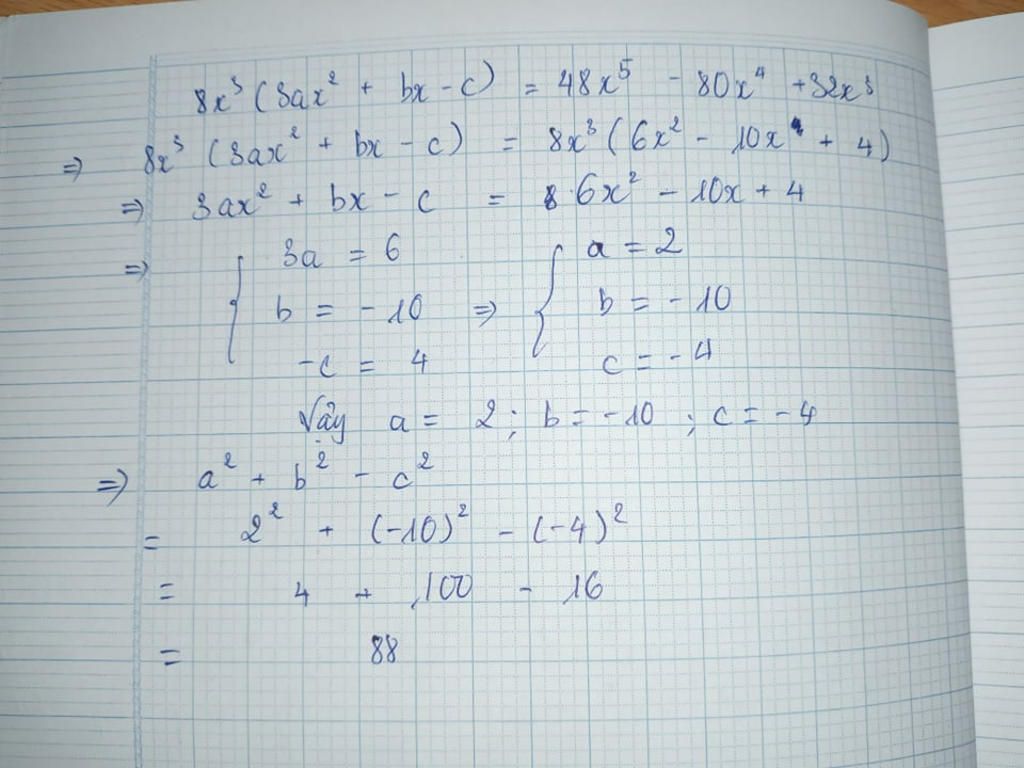 8x³ (3ax² + bx - c) = 48x⁵ - 80x⁴ + 32x³
⇒ 8x³ (3ax² + bx - c) = 8x³ (6x² - 10x + 4)
⇒ 3ax² + bx - c = 6x² - 10x + 4
⇒ { 3a = 6 { a = 2
b = -10 ⇒ b = -10
-c = 4 c = -4
Vậy a = 2 ; b = -10 ; c = -4
⇒ a² + b² - c²
= 2² + (-10)² - (-4)²
= 4 + 100 - 16
= 88